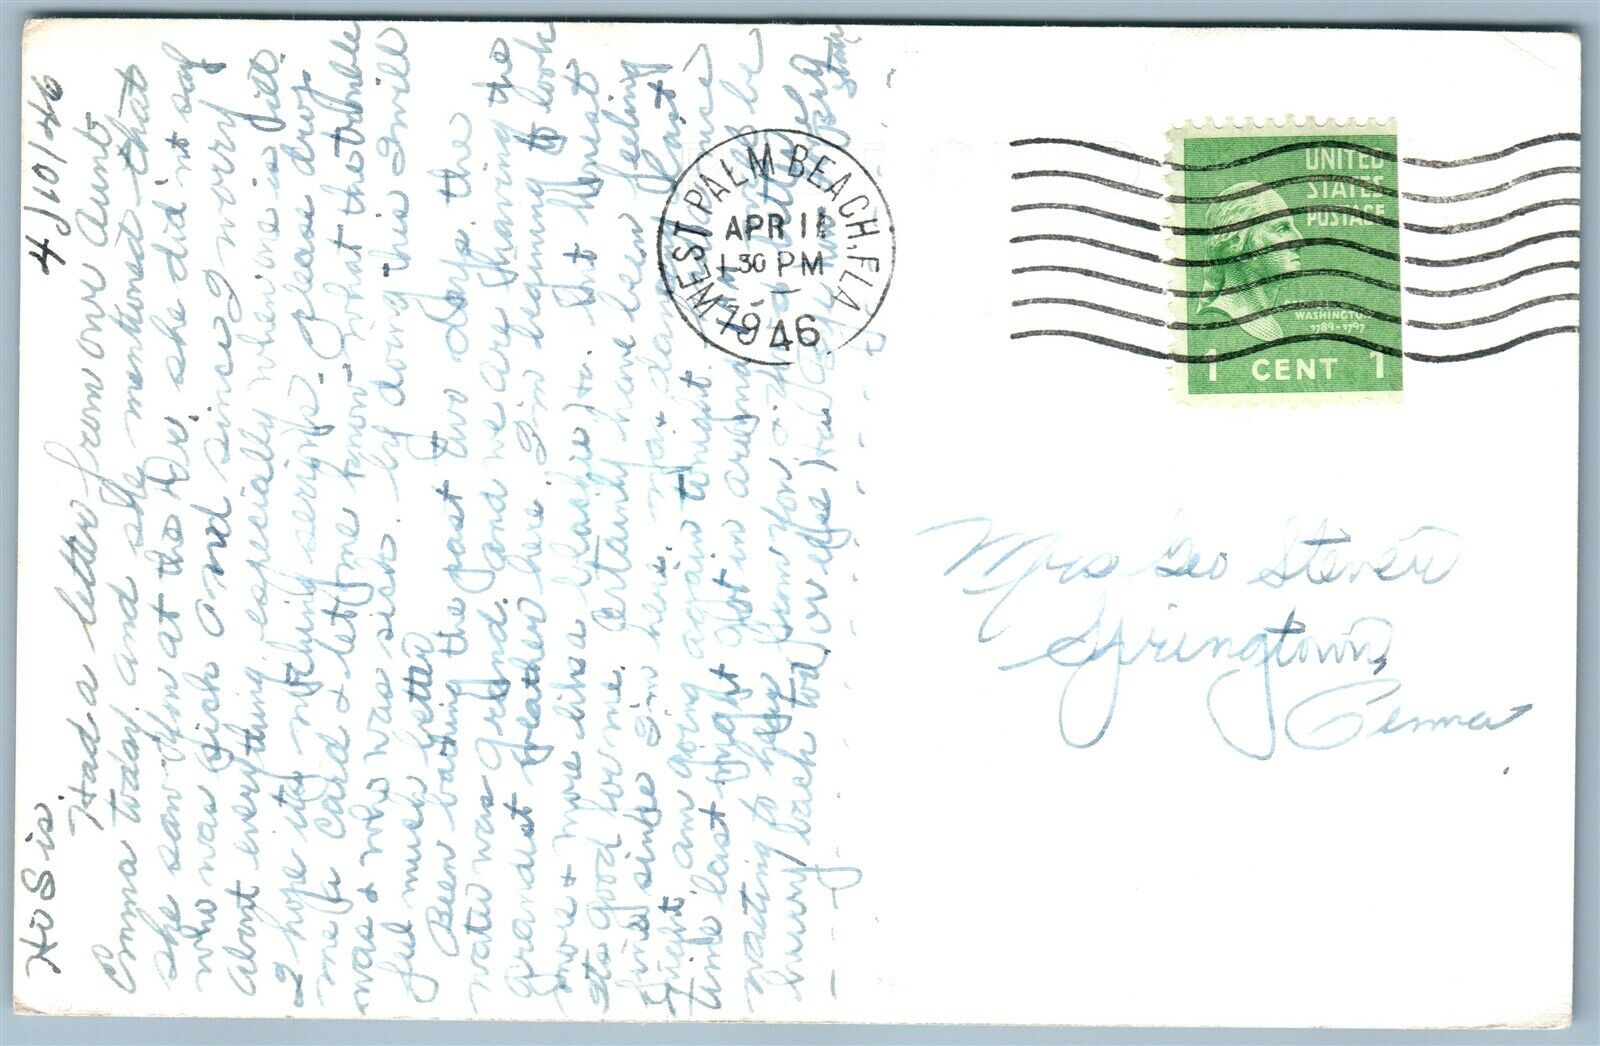 4/10/46
Hi Sis.
Had a letter from one Aunt
Emma today, and she mentioned that
she saw you at the Dr. she did'nt say
who was sick and since I worry
about everything especially when one is ill.
I hope its nothing serious. Please drop
me a card & let me know what the trouble
was & who was sick. by doing this I will
feel much better
Been bathing the past two days. the
water was grand. and we are having the
grandest weather here. I'm beginning to look
more & more like a but honest
its good for me. certainly have been feeling
fine since I'm here. danced last
night am going again tonight.
time last night got in around
waiting to hear from you
hurry back
WEST PALM BEACH, FLA.
APR 11
1 30 PM
1946
UNITED
STATES
POSTAGE
WASHINGTON
1789-1797
1 CENT 1
Mrs Geo Steven
Springtown,
Penna